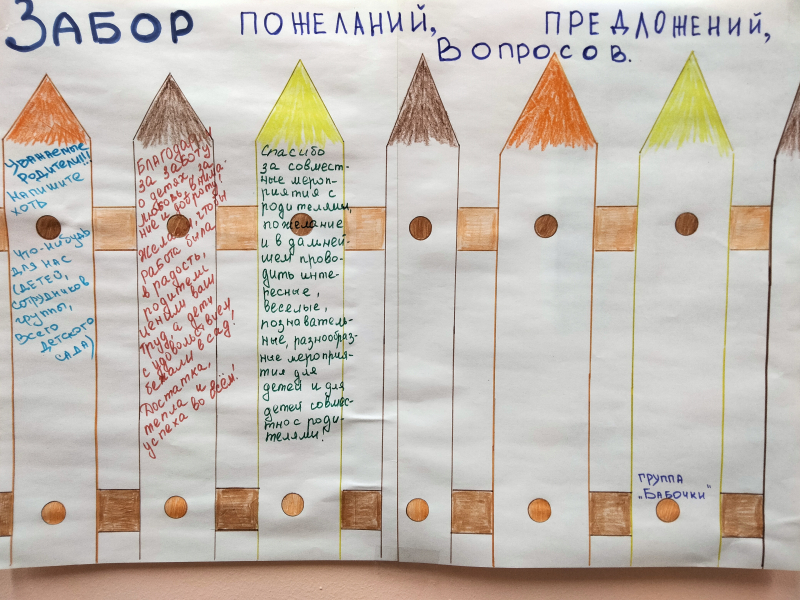 ЗАБОР ПОЖЕЛАНИЙ, ПРЕДЛОЖЕНИЙ,
ВОПРОСОВ.
Уважаемые
родители!!!
Напишите
хоть
что-нибудь
для нас
(детей,
сотрудников
группы,
всего
детского
сада)
Благодарим
за заботу
о детях, за
любовь, внима-
ние и доброту!
Желаем, чтобы
работа была
в радость,
родители
ценили ваш
труд, а дети
с удовольствием
бежали в сад!
Достатка,
тепла и
успеха во всём!
Спасибо
за совмест-
ные мероп-
риятия с
родителями,
пожелание
и в дальней-
шем прово-
дить инте-
ресные,
веселые,
познаватель-
ные, разнообраз-
ные мероприя-
тия для
детей и для
детей совмес-
тно с роди-
телями!
группа
"Бабочки"